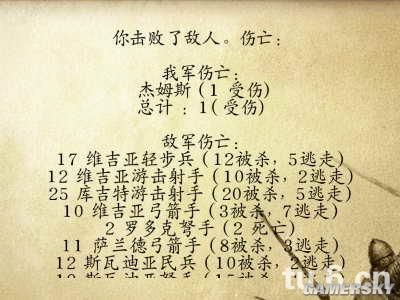 你击败了敌人。伤亡：
我军伤亡：
杰姆斯 (1 受伤)
总计 : 1( 受伤)
敌军伤亡：
17 维吉亚轻步兵 (12被杀，5逃走)
12 维吉亚游击射手 (10被杀，2逃走)
25 库吉特游击射手 (20被杀，5逃走)
10 维吉亚弓箭手 (3被杀，7逃走)
2 罗多克弩手 (2 死亡)
11 萨兰德弓箭手 (8被杀，3逃走)
12 斯瓦迪亚民兵 (10被杀，2逃走)
斯瓦迪亚弩手
GAMERSKY